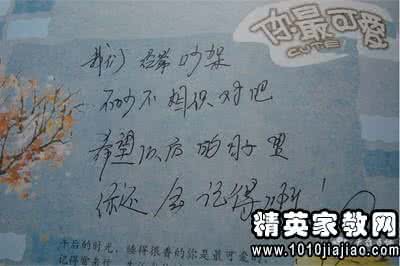 你最可爱
CUTE
我们经常吵架
不吵不相识对吧
希望以后的日子里
你还会记得
午后的时光，睡得很香的你是最可爱
精英家教网
www.1010jiajiao.com